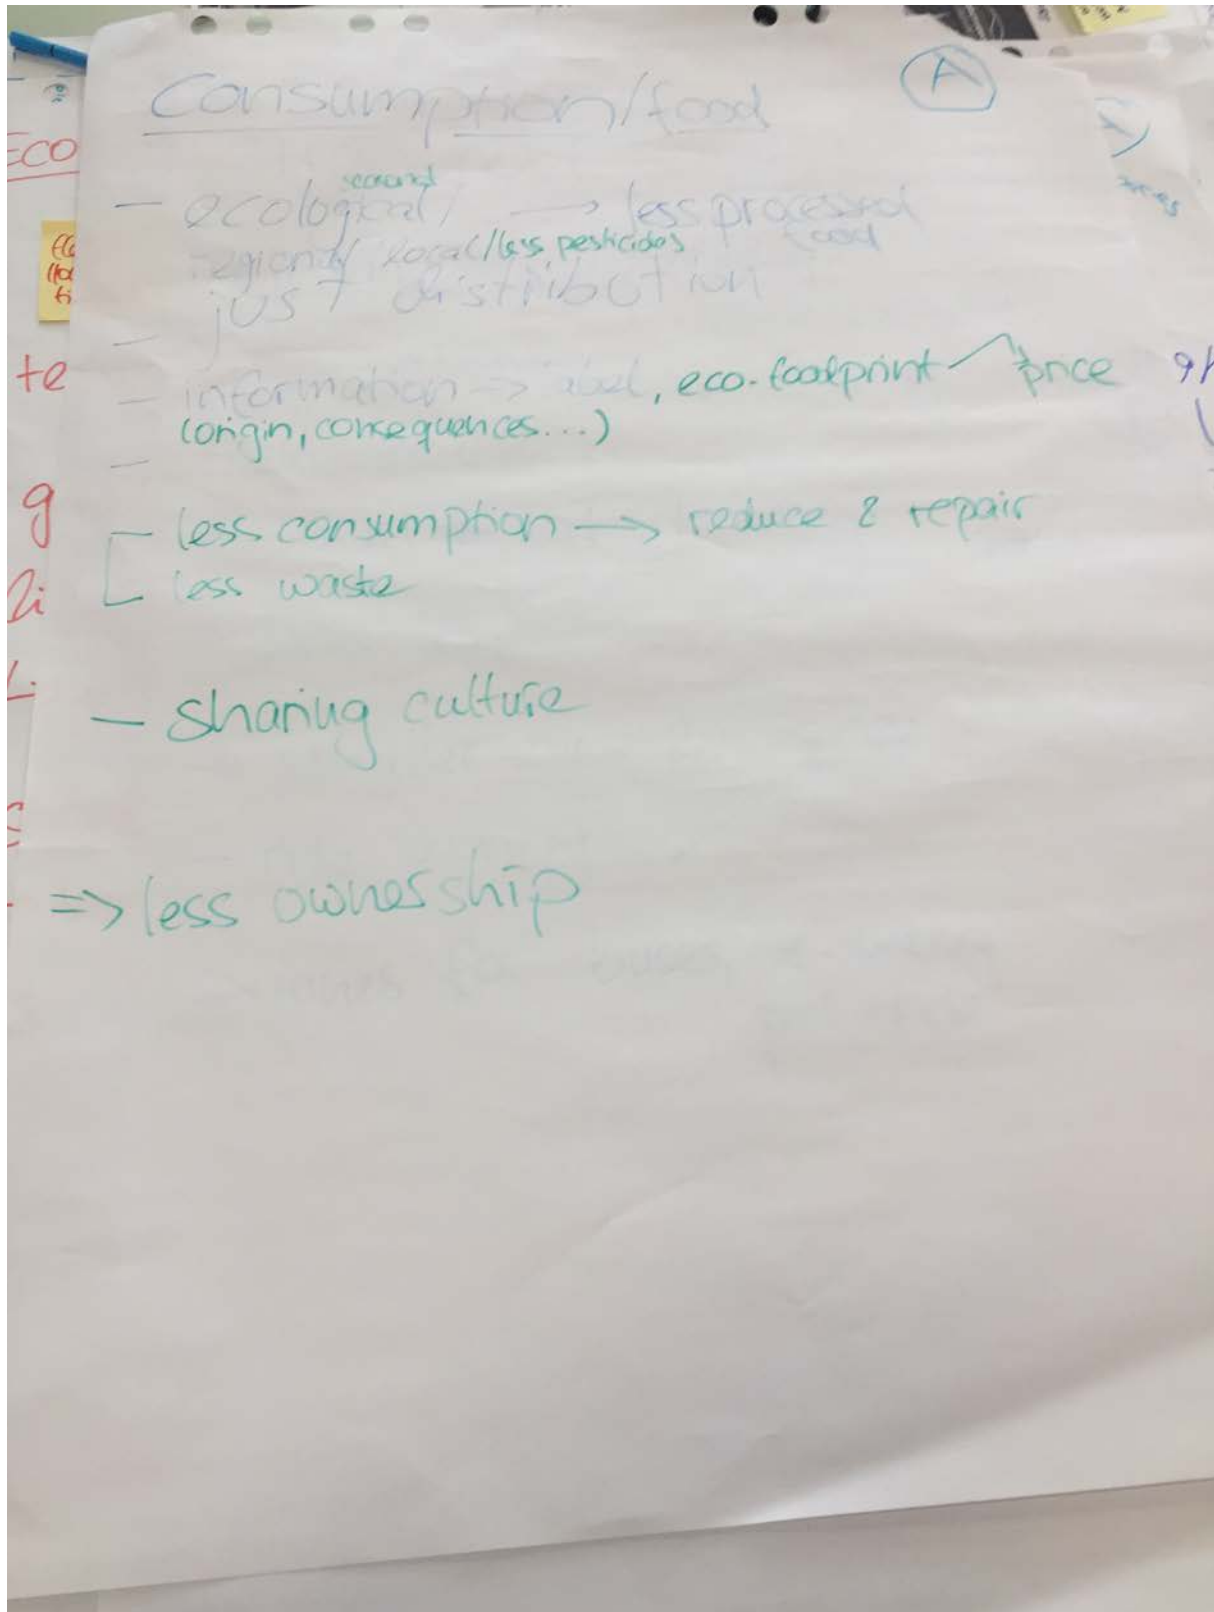 Consumption/food
A
seasonal
- ecological/ → less processed food
regional/ local/less pesticides
just distribution
-
- information → label, eco-footprint price
(origin, consequences...)
-
- less consumption → reduce & repair
- less waste
- sharing culture
=> less ownership
ECO
te
g